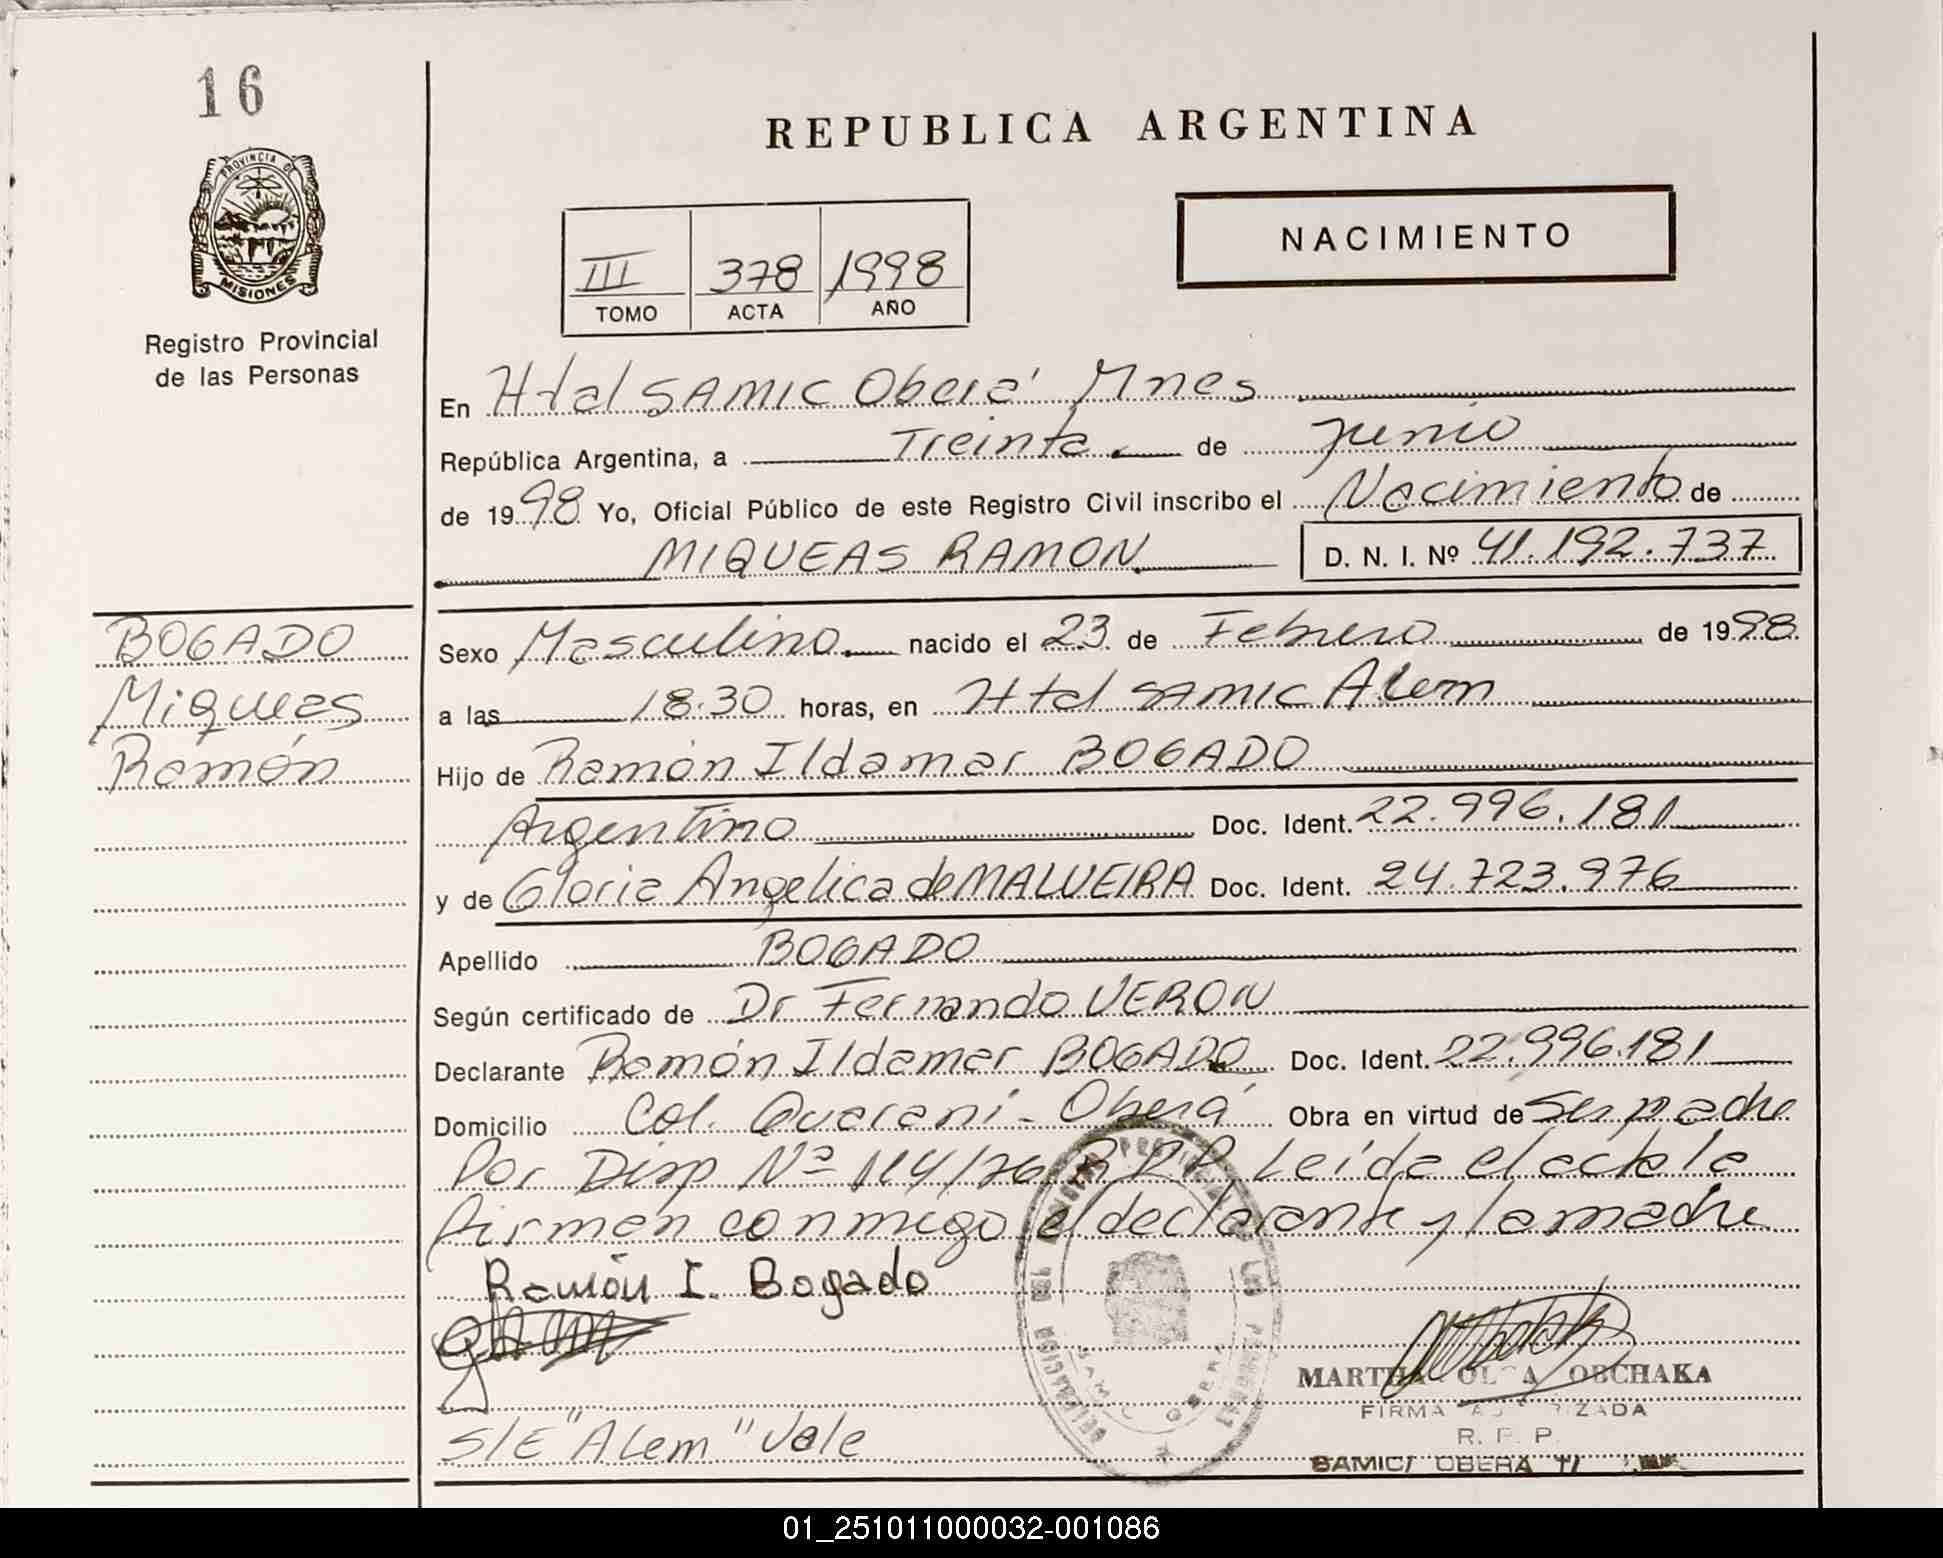 16
REPUBLICA ARGENTINA
PROVINCIA DE
MISIONES
Registro Provincial
de las Personas
NACIMIENTO
III 378 1998
TOMO ACTA AÑO
En Htal SAMIC Oberá Mnes
República Argentina, a Treinta de junio
de 1998 Yo, Oficial Público de este Registro Civil inscribo el Nacimiento de
MIQUEAS RAMON D. N. I. Nº 41.192.737
BOGADO
Miqueas
Ramón
Sexo Masculino nacido el 23 de Febrero de 1998.
a las 18.30 horas, en Htal SAMIC Alem
Hijo de Ramón Ildamar BOGADO
Argentino Doc. Ident. 22.996.181
y de Gloria Angelica de MALVEIRA Doc. Ident. 24.723.976
Apellido BOGADO
Según certificado de Dr Fernando VERON
Declarante Ramón Ildamar BOGADO Doc. Ident. 22.996.181
Domicilio Col. Guarani - Oberá Obra en virtud de Ser padre
Por Disp Nº 114/76 R.P.P. Leída el acta la
firman conmigo el declarante y la madre
Ramón I. Bogado
MARTHA OLGA OBCHAKA
FIRMA AUTORIZADA
R. P. P.
SAMIC OBERA
S/E "Alem" Vale
01_251011000032-001086